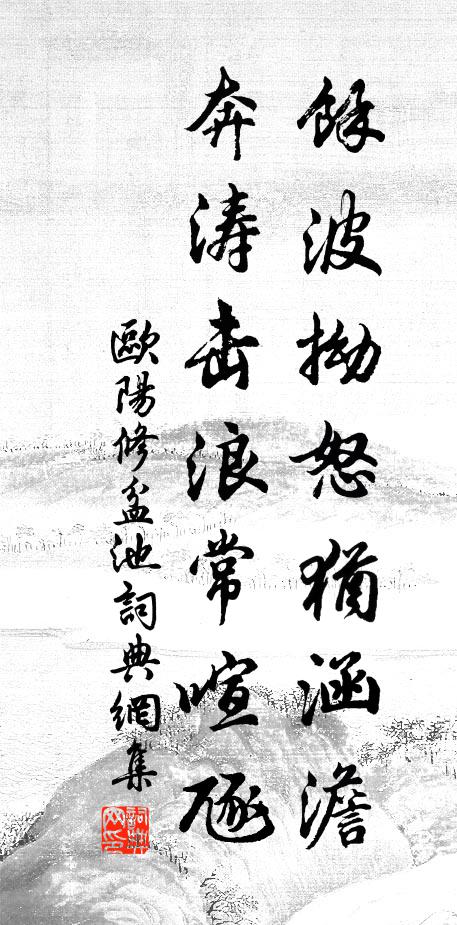 餘波拗怒猶涵澹
奔涛击浪常喧豗
歐陽修盆池詞典網集